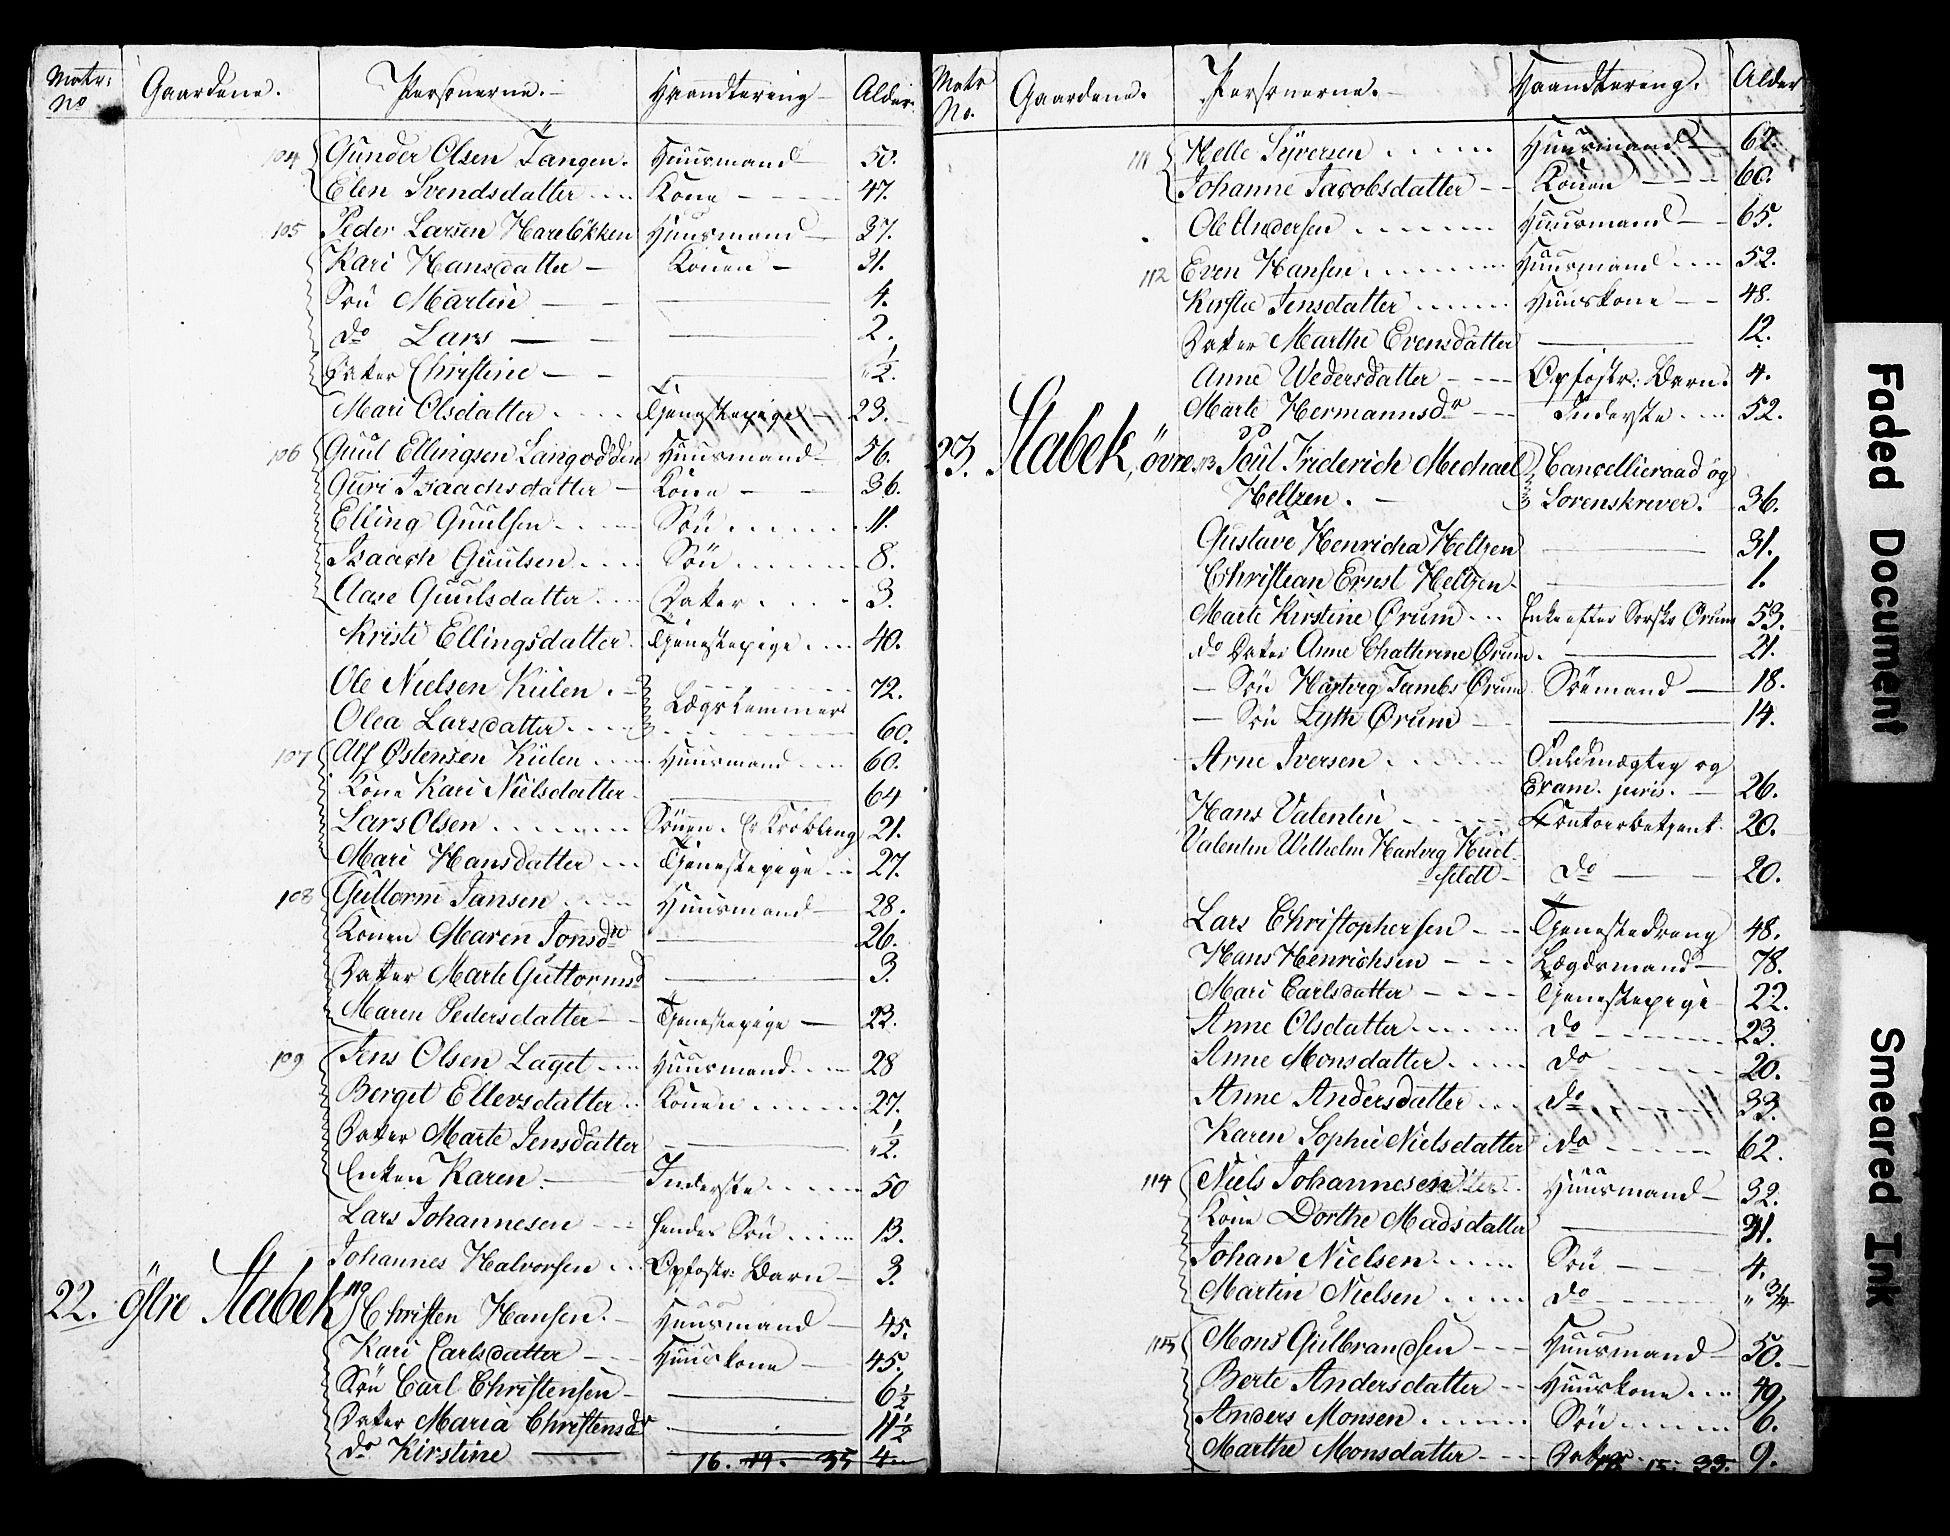 Matr: No Gaardene. Personerne. Haandtering Alder.
104 Gunder Olsen Tangen. Huusmand 50.
Elen Svendsdatter Kone 47.
105 Peder Larsen Harelökken Huusmand 37.
Kari Hansdatter Konen 31.
Sön Martin 4.
do Lars 2.
Datter Christine 1/2.
Mari Olsdatter Tjenestepige 23.
106 Guul Ellingsen Langodden Huusmand 56.
Guri Isaachsdatter Kone 36.
Elling Guulsen Sön 11.
Isaach Guulsen Sön 8.
Aase Guulsdatter Datter 3.
Kristi Ellingsdatter Tjenestepige 40.
Ole Nielsen Kiilen 72.
Lægslemmer
Olea Larsdatter 60.
107 Alf Østensen Kiilen Huusmand 60.
Kone Kari Nielsdatter 64
Lars Olsen Sönnen. Er Krökling 21.
Mari Hansdatter Tjenestepige 27.
108 Guttorm Jansen Huusmand 28.
Konen Maren Jonsdr 26.
Datter Marte Guttormsd 3.
Maren Pedersdatter Tjenestepige 23.
109 Jens Olsen Laget Huusmand 28
Berget Ellevsdatter Konen 27.
Datter Marte Jensdatter 1/2.
Enken Karen Inderste 50
Lars Johannesen hendes Sön 13.
Johannes Halvorsen Opfostr: Barn 3.
22. östre Stabek 110 Christen Hansen. Huusmand 45.
Kari Carlsdatter Huuskone 45.
Sön Carl Christensen 6 1/2
Datter Maria Christensdr 11 1/2
do Kirstine 4.
16. 19. 35
Matr No. Gaardene. Personerne. Haandtering. Alder
111 Helle Syversen Huusmand 62.
Johanne Jacobsdatter Konen 60.
Ole Andersen Huusmand 65.
112 Even Hansen Huusmand 52.
Kirstie Jensdatter Huuskone 48.
Datter Marthe Evensdatter 12.
Anne Wedersdatter Opfostr: Barn. 4.
Marte Hermannsdr Inderste 52.
23. Stabek, övre. 113 Poul Friderich Mechael Cancellieraad og
Heltzen. Sorenskriver. 36.
Gustave Henricha Heltzen 31.
Christian Ernst Heltzen 1.
Marte Kirstine Ørum Enke efter Sorskr Ørum 53.
do Datter Anne Chathrine Ørum. 21.
Sön Hartvig Tambs Ørum Söemand 18.
Sön Lyth Ørum 14.
Arne Iversen Fuldmægteg og
Exam. juris. 26.
Hans Valentin Contoirbetjent 20.
Valentin Wilhelm Hartvig Huit-
feldt do 20.
Lars Christophersen Tjenestedreng 48.
Hans Henrichsen Lægdsmand 78.
Mari Carlsdatter Tjenestepige 22.
Anne Olsdatter do 23.
Anne Monsdatter do 20.
Anne Andersdatter do 33.
Karen Sophie Nielsdatter do 62.
114 Niels Johannesen Huusmand 32.
Kone Dorthe Madsdatter 31.
Johan Nielsen Sön 4.
Martin Nielsen do " 3/4
115 Mons Gulbrandsen Huusmand 50.
Berte Andersdatter Huuskone 40.
Anders Monsen Sön 6.
Marthe Monsdatter Datter 9.
15. 33.
Faded Document
Smeared Ink